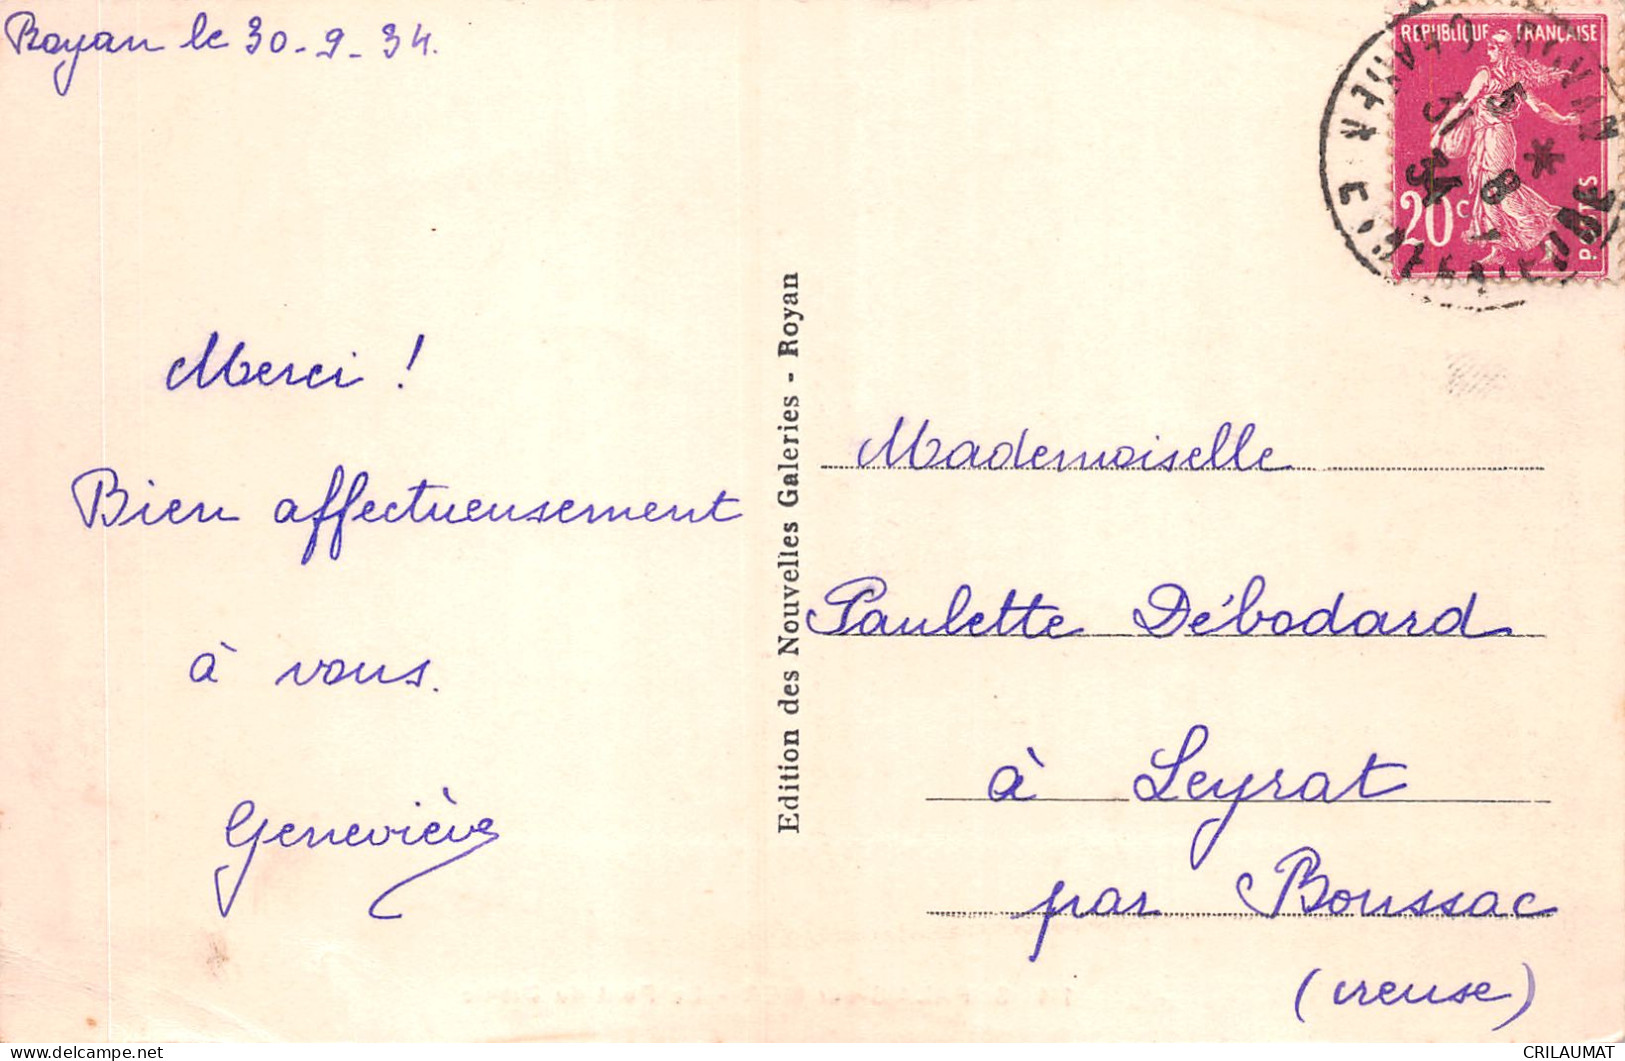 Royan le 30-9-34.
Merci !
Bien affectueusement
à vous.
Geneviève
Edition des Nouvelles Galeries - Royan
REPUBLIQUE FRANÇAISE
20c
POSTES
Mademoiselle
Paulette Débodard
à Leyrat
par Boussac
(creuse)
CRILAUMAT